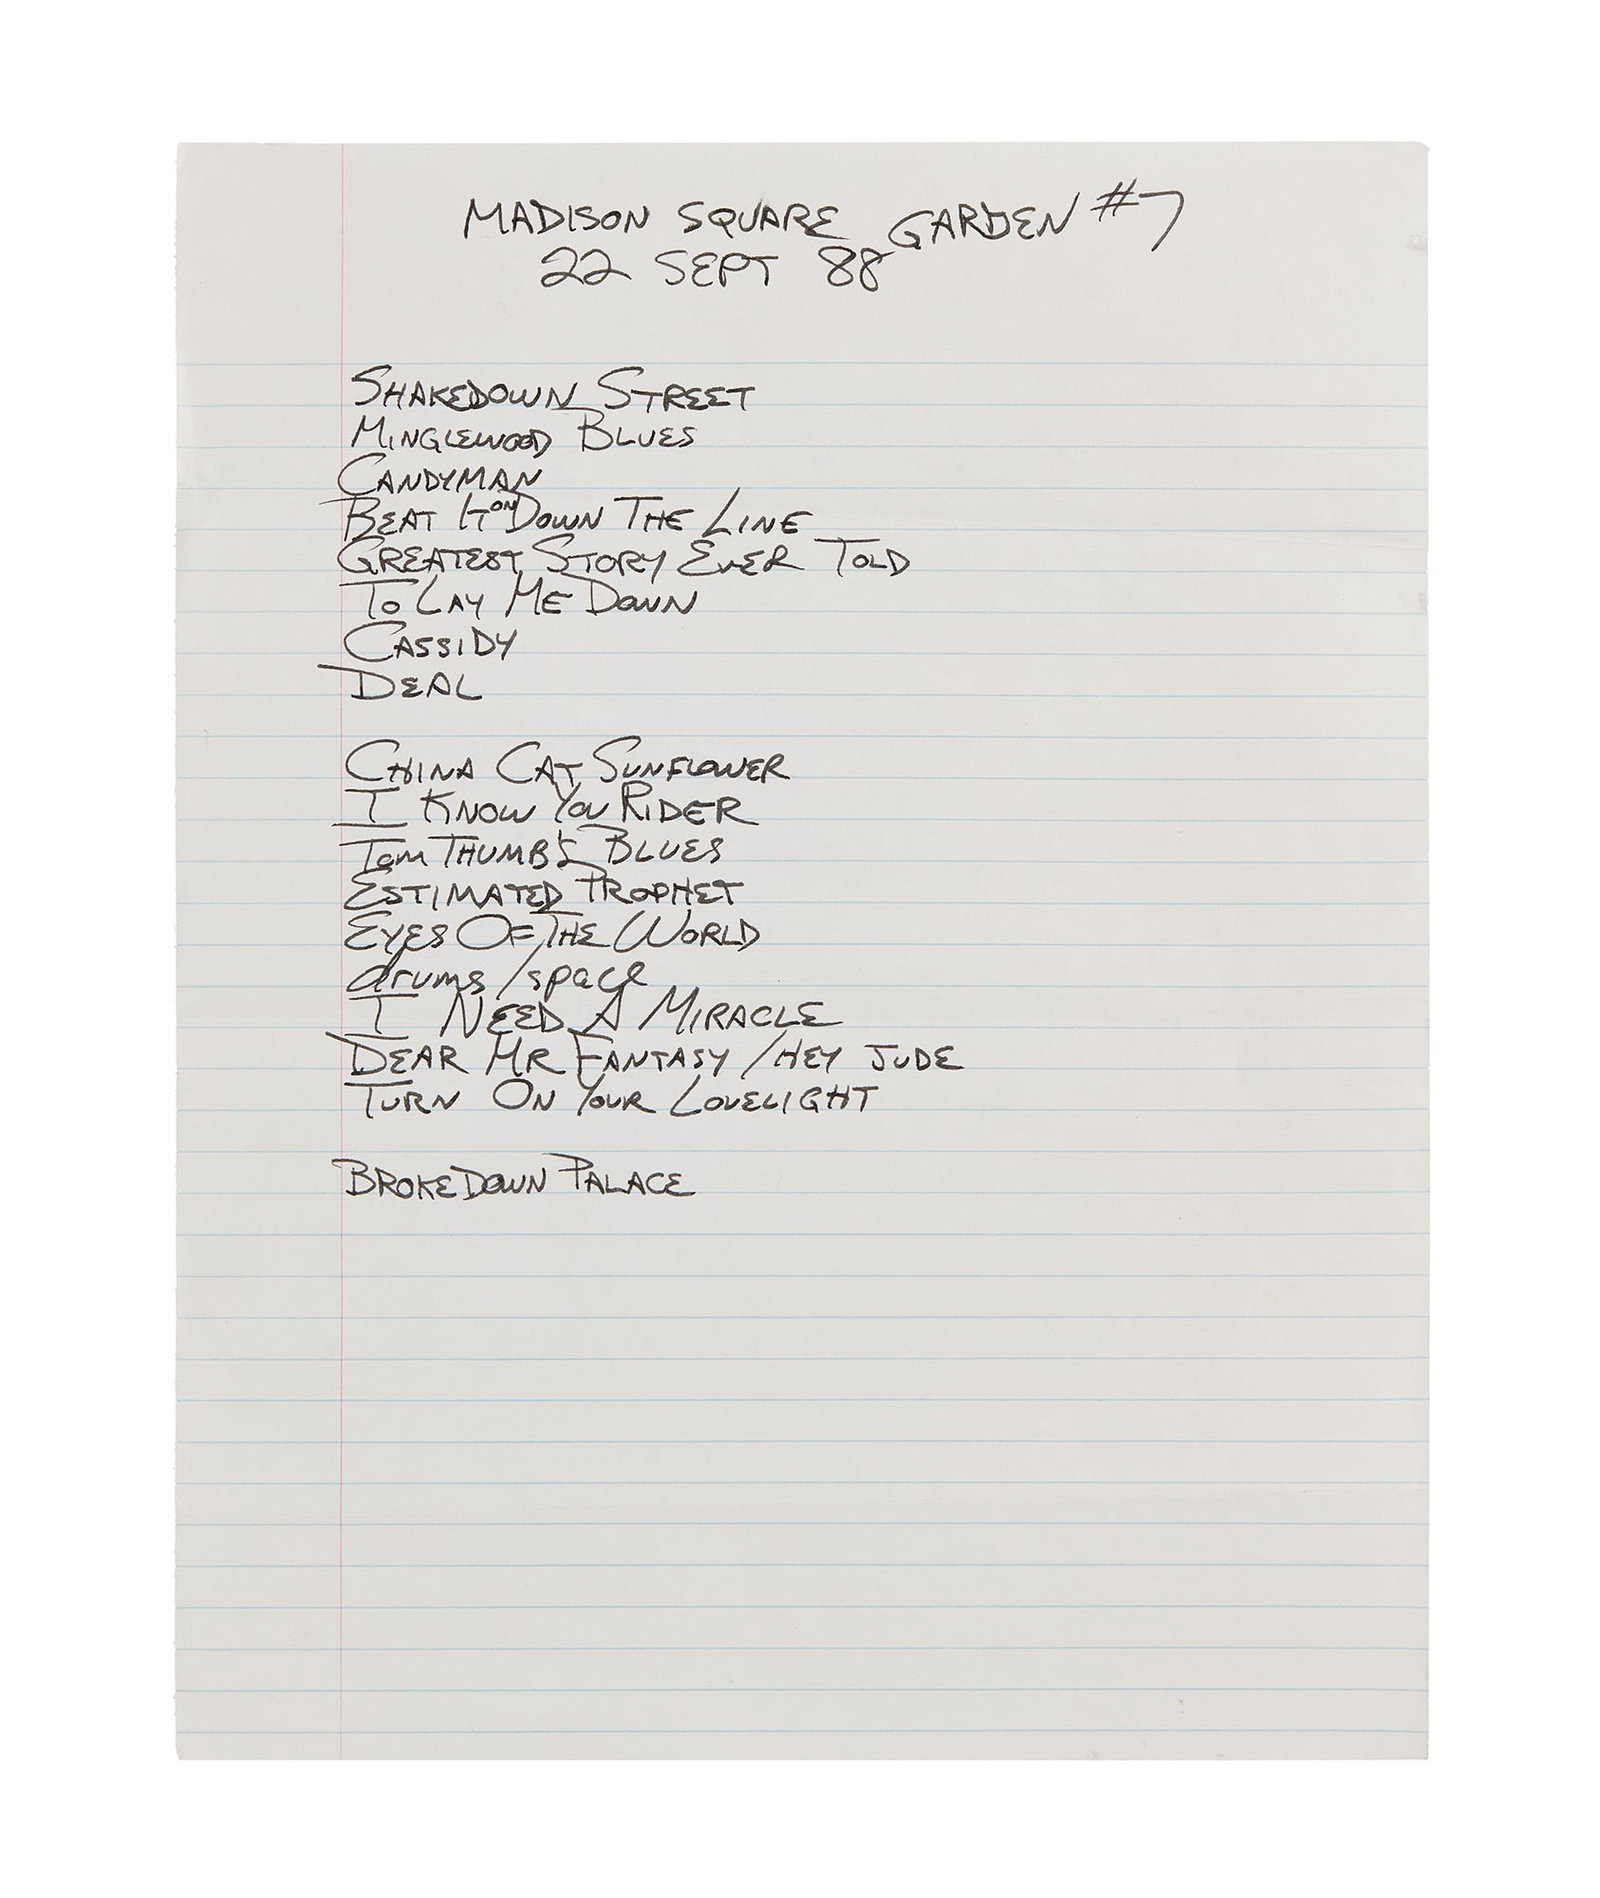 MADISON SQUARE GARDEN #7
22 SEPT 88
SHAKEDOWN STREET
MINGLEWOOD BLUES
CANDYMAN
BEAT IT ON DOWN THE LINE
GREATEST STORY EVER TOLD
TO LAY ME DOWN
CASSIDY
DEAL
CHINA CAT SUNFLOWER
I KNOW YOU RIDER
TOM THUMB'S BLUES
ESTIMATED PROPHET
EYES OF THE WORLD
drums / space
I NEED A MIRACLE
DEAR MR FANTASY / HEY JUDE
TURN ON YOUR LOVELIGHT
BROKEDOWN PALACE